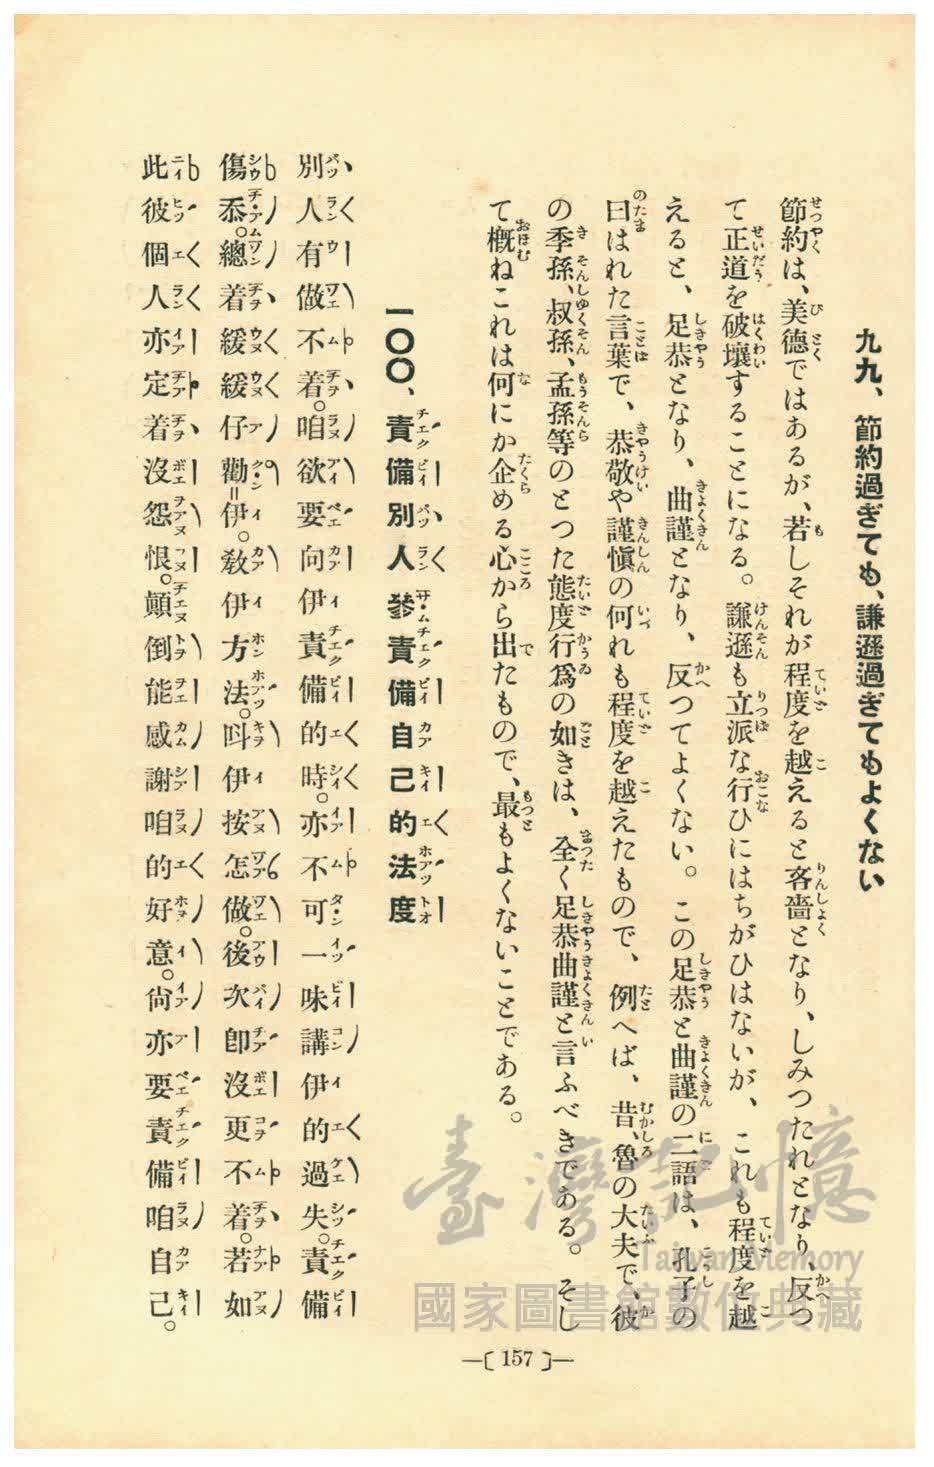 九九、節約過ぎても、謙遜過ぎてもよくない
節約は、美德ではあるが、若しそれが程度を越えると吝嗇となり、しみつたれとなり、反つ
て正道を破壞することになる。謙遜も立派な行ひにはちがひはないが、これも程度を越
えると、足恭となり、曲謹となり、反つてよくない。この足恭と曲謹の二語は、孔子の
曰はれた言葉で、恭敬や謹愼の何れも程度を越えたもので、例へば、昔、魯の大夫で、彼
の季孫、叔孫、孟孫等のとつた態度行爲の如きは、全く足恭曲謹と言ふべきである。そし
て槪ねこれは何にか企める心から出たもので、最もよくないことである。
一〇〇、責備別人參責備自己的法度
別人有做不着。咱欲要向伊責備的時。亦不可一味講伊的過失。責備
傷忝。總着緩緩仔勸伊。敎伊方法。呌伊按怎做。後次卽沒更不着。若如
此彼個人亦定着沒怨恨。顚倒能感謝咱的好意。尙亦要責備咱自己。
臺灣記憶
Taiwan Memory
國家圖書館數位典藏
—〔157〕—